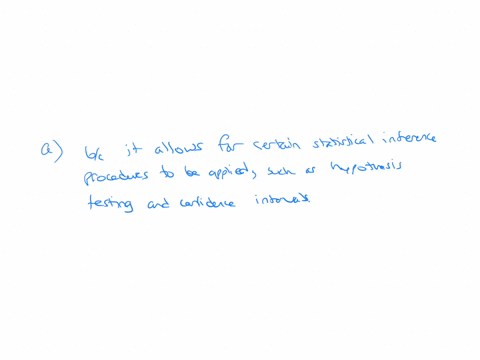 a) b/c it allows for certain statistical inference
procedures to be applied, such as hypothesis
testing and confidence intervals.